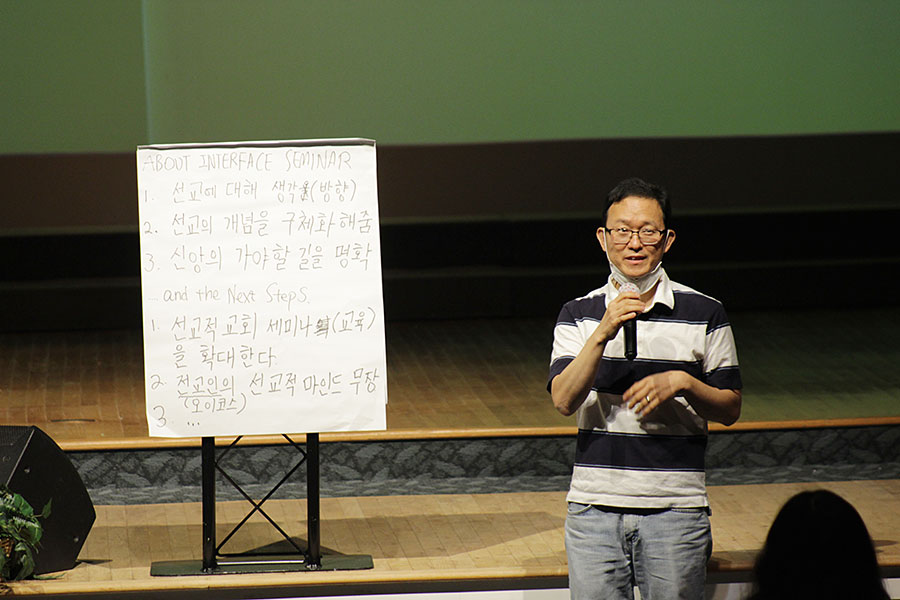 ABOUT INTERFACE SEMINAR
1. 선교에 대해 생각(방향)
2. 선교의 개념을 구체화해줌
3. 신앙의 가야할 길을 명확
... and the Next Steps.
1. 선교적 교회 세미나(교육)
을 확대한다.
2. 전교인의 선교적 마인드 무장
(오이코스)
3. ...